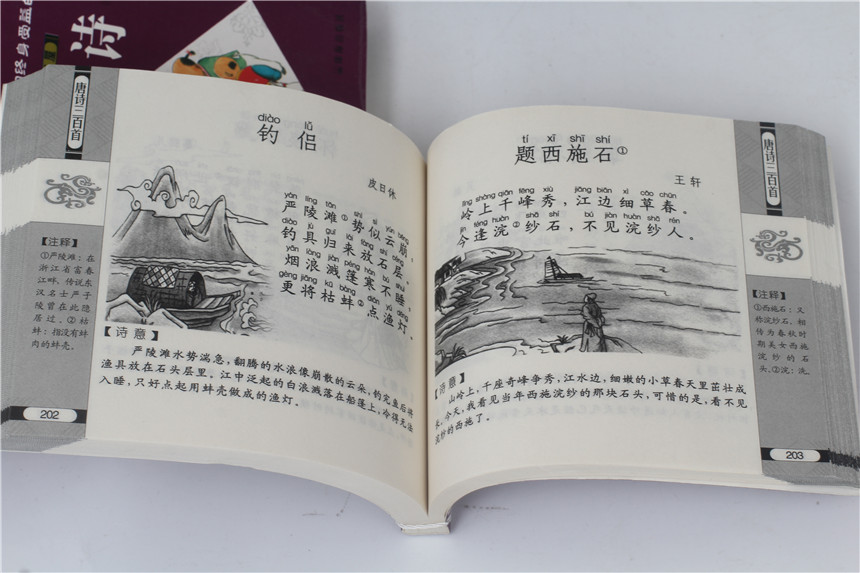 终身受益
诗
唐诗三百首
diào lǚ
钓侣
皮日休
yán líng tān shì sì yún bēng
严陵滩①势似云崩，
diào jù guī lái fàng shí céng
钓具归来放石层。
yān làng jiàn péng hán bú shuì
烟浪溅篷寒不睡，
gèng jiāng kū bàng diǎn yú dēng
更将枯蚌②点渔灯。
【注释】
①严陵滩：在
浙江省富春
江畔，传说东
汉名士严子
陵曾在此隐
居过。②枯
蚌：指没有蚌
肉的蚌壳。
【诗意】
严陵滩水势湍急，翻腾的水浪像崩散的云朵，钓完鱼后将
渔具放在石头层里。江中泛起的白浪溅落在船篷上，冷得无法
入睡，只好点起用蚌壳做成的渔灯。
202
唐诗三百首
tí xī shī shí
题西施石①
王轩
lǐng shàng qiān fēng xiù jiāng biān xì cǎo chūn
岭上千峰秀，江边细草春。
jīn féng huàn shā shí bú jiàn huàn shā rén
今逢浣②纱石，不见浣纱人。
【诗意】
山岭上，千座奇峰争秀，江水边，细嫩的小草春天里茁壮成
长。今天，我看见当年西施浣纱的那块石头，可惜的是，看不见
浣纱的西施了。
【注释】
①西施石：又
称浣纱石，相
传为春秋时
期美女西施
浣纱的石
头。②浣：洗。
203